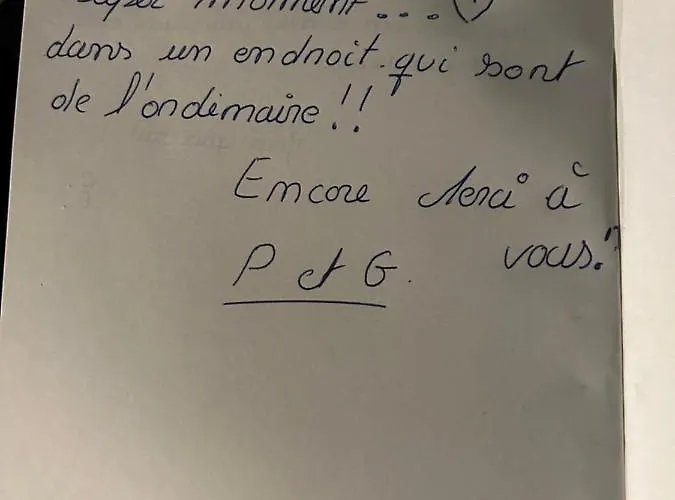 super moment... (!)
dans un endroit. qui sont
de l'ordimaire!!
Encore Merci à
vous!!
P et G.